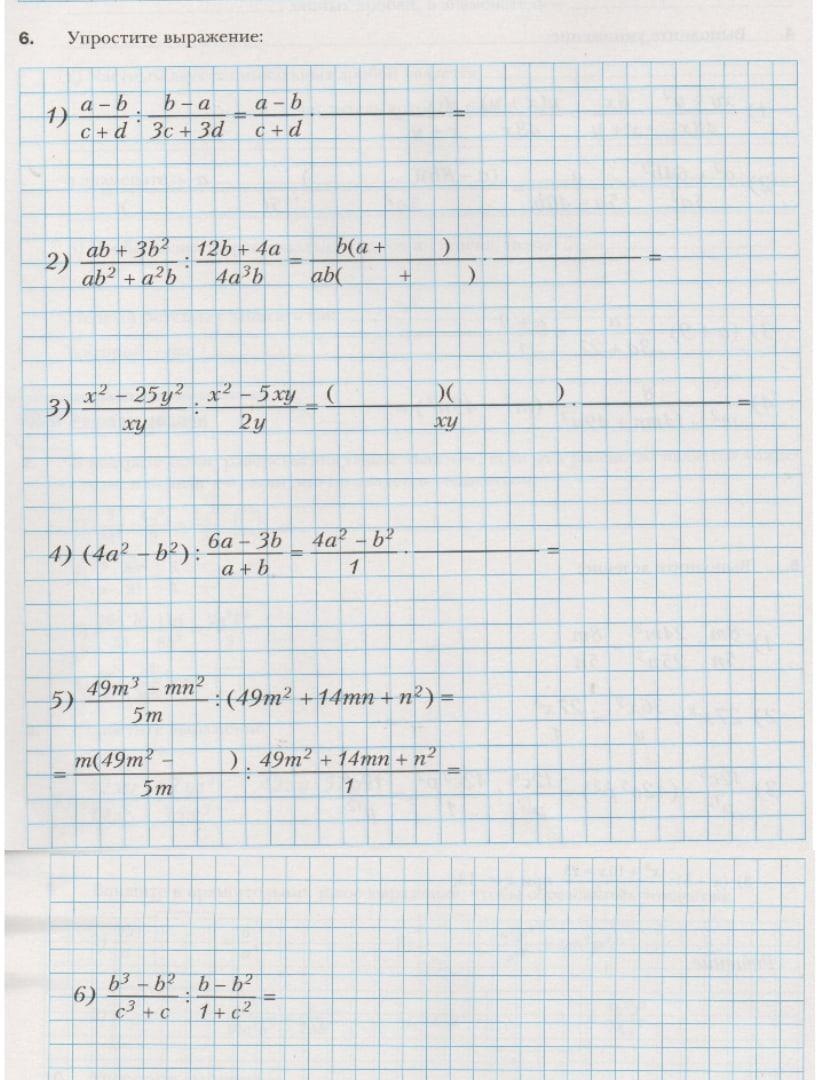 6. Упростите выражение:
1) (a – b)/(c + d) : (b – a)/(3c + 3d) = (a – b)/(c + d) · ―――― =
2) (ab + 3b²)/(ab² + a²b) : (12b + 4a)/(4a³b) = b(a +      )/ab(      +      ) · ―――― =
3) (x² – 25y²)/(xy) : (x² – 5xy)/(2y) = (      )(      )/(xy) · ―――― =
4) (4a² – b²) : (6a – 3b)/(a + b) = (4a² – b²)/1 · ―――― =
5) (49m³ – mn²)/(5m) : (49m² + 14mn + n²) =
= m(49m² –      )/(5m) : (49m² + 14mn + n²)/1 =
6) (b³ – b²)/(c³ + c) : (b – b²)/(1 + c²) =